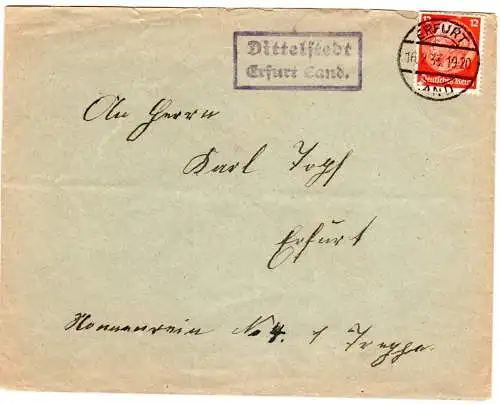 Dittelstedt
Erfurt Land.
12 12
Deutsches Reich
ERFURT
16. 2. 19-20
LAND
An Herrn
Karl Topf
Erfurt
Nonnenrein No 4. 1 Treppe.